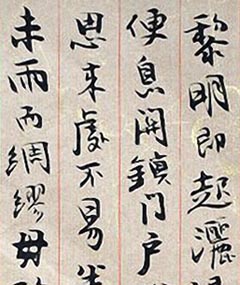 黎明即起灑
便息關鎖門戶
思來處不易
未雨而綢繆毋